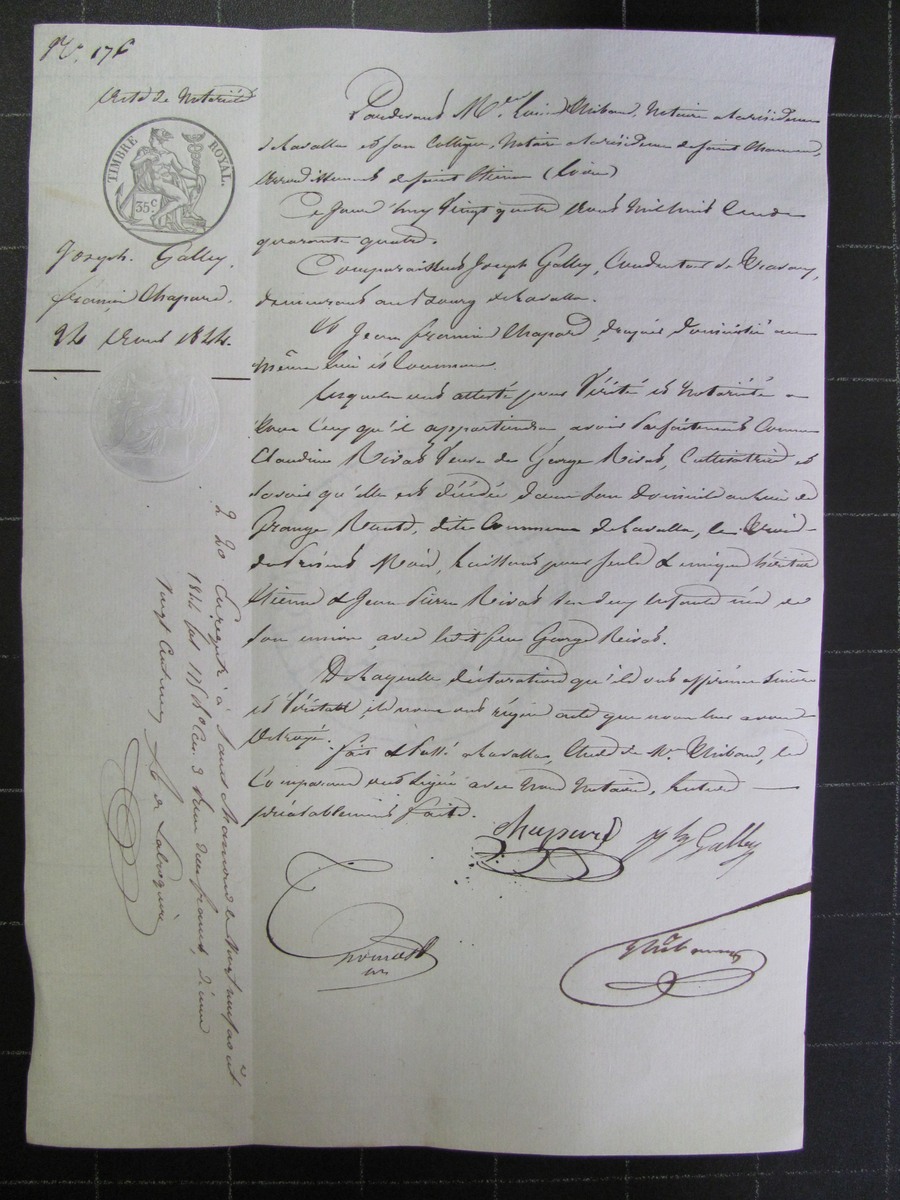 N°. 176
Acte de Notoriété
TIMBRE ROYAL.
35 c
Joseph Galley,
Chapard.
24 Aout 1844.
Pardevant Me Thibaud, Notaire à la résidence
de Lavalla et son Collègue, Notaire à la résidence de Saint Chamond,
arrondissement de Saint Etienne (Loire)
Ce jour d'huy vingt quatre Aout mil huit cent
quarante quatre.
Comparaissent Joseph Galley, Conducteur de Travaux,
demeurant au Bourg de Lavalla.
Et Jean Chapard, domicilié au
même lieu et Commune.
Lesquels ont attesté pour Vérité et Notoriété à
tous ceux qu'il appartiendra, avoir parfaitement connu
Claudine Rivat Veuve de George Rivat, Cultivatrice et
savoir qu'elle est décédée dans son domicile au lieu de
Grange dite Commune de Lavalla, le
du présent Mois, laissant pour seuls & uniques héritiers
Etienne & Jean Pierre Rivat ses deux enfants nés de
son union avec ledit feu George Rivat.
De laquelle déclaration qu'ils ont affirmé sincère
et Véritable, ils nous ont requis acte que nous leur avons
octroyé.
Fait & Passé à Lavalla, Etude de Me Thibaud, les
Comparants ont signé avec Nous Notaires, lecture
préalablement faite.
Chapard Galley
Thibaud
2 20 Enregistré à Saint Chamond le vingt neuf août
1844 deux francs, dixme
vingt centimes